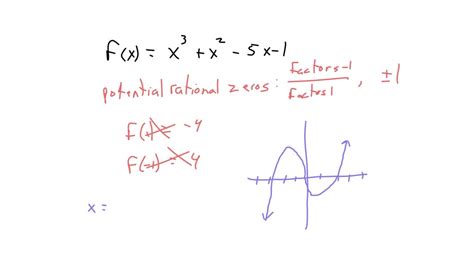 f(x) = x³ + x² - 5x - 1
potential rational zeros: factors -1 / factors 1, ±1
f(1) = -4
f(-1) = 4
x =